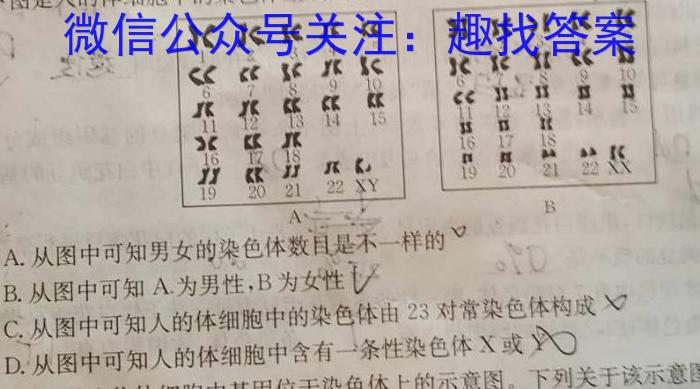 图是人的体细胞中的染色体
微信公众号关注：趣找答案
6 7 8 9 10
11 12 13 14 15
16 17 18
19 20 21 22 XY
A
10
11 12 13 14 15
16 17 18
19 20 21 22 XX
B
A. 从图中可知男女的染色体数目是不一样的
B. 从图中可知 A 为男性,B 为女性
C. 从图中可知人的体细胞中的染色体由 23 对常染色体构成
D. 从图中可知人的体细胞中含有一条性染色体 X 或
体细胞中基因位于染色体上的示意图。下列关于该示意图